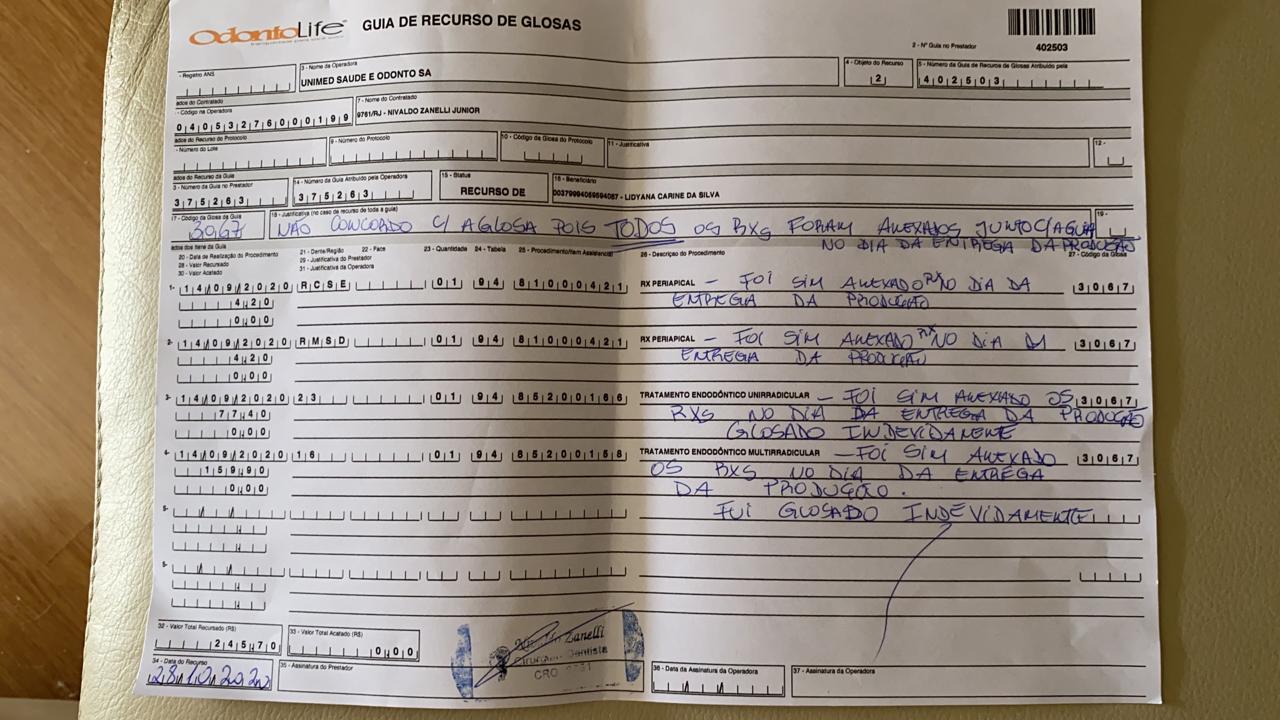 OdontoLife GUIA DE RECURSO DE GLOSAS
2 - Nº Guia no Prestador
402503
- Registro ANS
3 - Nome da Operadora
UNIMED SAUDE E ODONTO SA
4 - Objeto do Recurso
2
5 - Número da Guia de Recurso de Glosas Atribuído pela
402503
ados do Contratado
- Código na Operadora
04053276000199
7 - Nome do Contratado
9761/RJ - NIVALDO ZANELLI JUNIOR
ados do Recurso do Protocolo
- Número do Lote
9 - Número do Protocolo
10 - Código da Glosa do Protocolo
11 - Justificativa
12 -
ados do Recurso da Guia
3 - Número da Guia no Prestador
375263
14 - Número da Guia Atribuído pela Operadora
375263
15 - Status
RECURSO DE
16 - Beneficiário
00379994059694087 - LIDYANA CARINE DA SILVA
17 - Código da Glosa da Guia
3067
18 - Justificativa (no caso de recurso de toda a guia)
NÃO CONCORDO C/ A GLOSA POIS TODOS OS RXS FORAM ANEXADOS JUNTO C/ A GUIA
NO DIA DA ENTREGA DA PRODUCÃO
19 -
ados dos Itens da Guia
20 - Data de Realização do Procedimento
28 - Valor Recursado
30 - Valor Acatado
21 - Dente/Região
29 - Justificativa do Prestador
31 - Justificativa da Operadora
22 - Face
23 - Quantidade
24 - Tabela
25 - Procedimento/Item Assistencial
26 - Descrição do Procedimento
27 - Código da Glosa
1- 14/09/2020 RCSE 01 94 81000421 RX PERIAPICAL — FOI SIM ANEXADO RX NO DIA DA 3067
420 ENTREGA DA PRODUÇÃO
0,00
2- 14/09/2020 RMSD 01 94 81000421 RX PERIAPICAL — FOI SIM ANEXADO RX NO DIA D 3067
420 ENTREGA DA PRODUÇÃO
0,00
3- 14/09/2020 23 01 94 85200166 TRATAMENTO ENDODÔNTICO UNIRRADICULAR — FOI SIM ANEXADO OS 3067
7740 RXS NO DIA DA ENTREGA DA PRODUÇÃO
0,00 GLOSADO INDEVIDAMENTE
4- 14/09/2020 16 01 94 85200158 TRATAMENTO ENDODÔNTICO MULTIRRADICULAR — FOI SIM ANEXADO 3067
15990 OS RXS NO DIA DA ENTREGA
0,00 DA PRODUÇÃO.
5- FUI GLOSADO INDEVIDAMENTE
6-
32 - Valor Total Recursado (R$)
24570
33 - Valor Total Acatado (R$)
0,00
34 - Data do Recurso
28/10/2020
35 - Assinatura do Prestador
Zanelli
Cirurgião Dentista
CRO 9761
36 - Data da Assinatura da Operadora
37 - Assinatura da Operadora